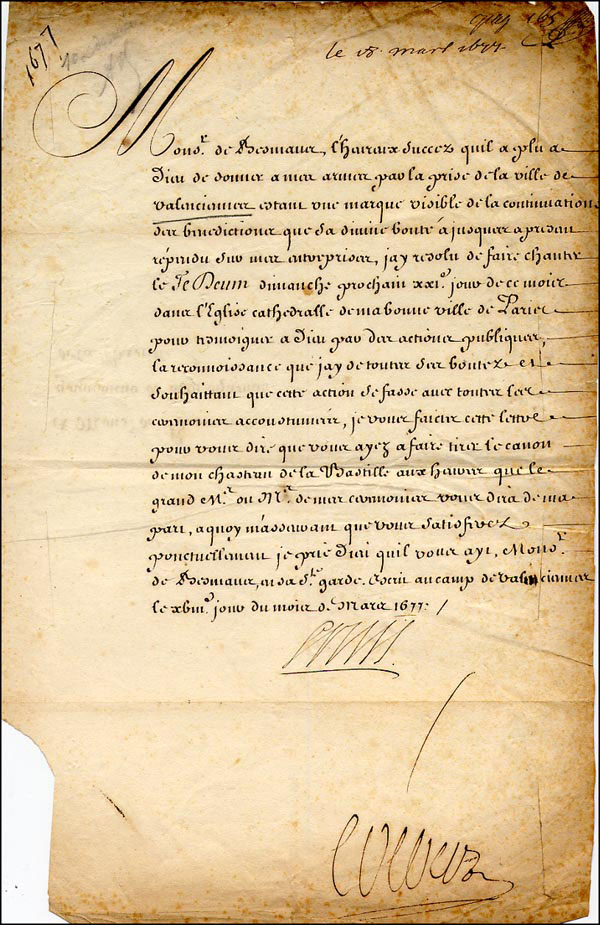 1677
le 18. mars 1677
Mons.r de Besmaux, l'heureux succez quil a plu a
Dieu de donner a mes armes par la prise de la ville de
Valenciennes estant une marque visible de la continuation
des benedictions que sa divine bonté a jusques a present
répendu sur mes entreprises, jay resolu de faire chanter
le Te Deum dimanche prochain xxi.e jour de ce mois
dans l'Eglise cathedralle de ma bonne ville de Paris
pour tesmoigner a Dieu par des actions publiques
la reconnoissance que jay de toutes ses bontez et
souhaittant que cette action se fasse avec toutes les
ceremonies accoustumées, je vous fais cette lettre
pour vous dire que vous ayez a faire tirer le canon
de mon chasteau de la Bastille aux heures que le
grand M.e ou M.e de mes ceremonies vous dira de ma
part, a quoy m'asseurant que vous satisferez
ponctuellement je prie Dieu quil vous ayt, Mons.r
de Besmaux, en sa S.te garde. Escrit au camp de Valenciennes
le xviii.e jour du mois de Mars 1677. /
Louis
Colbert